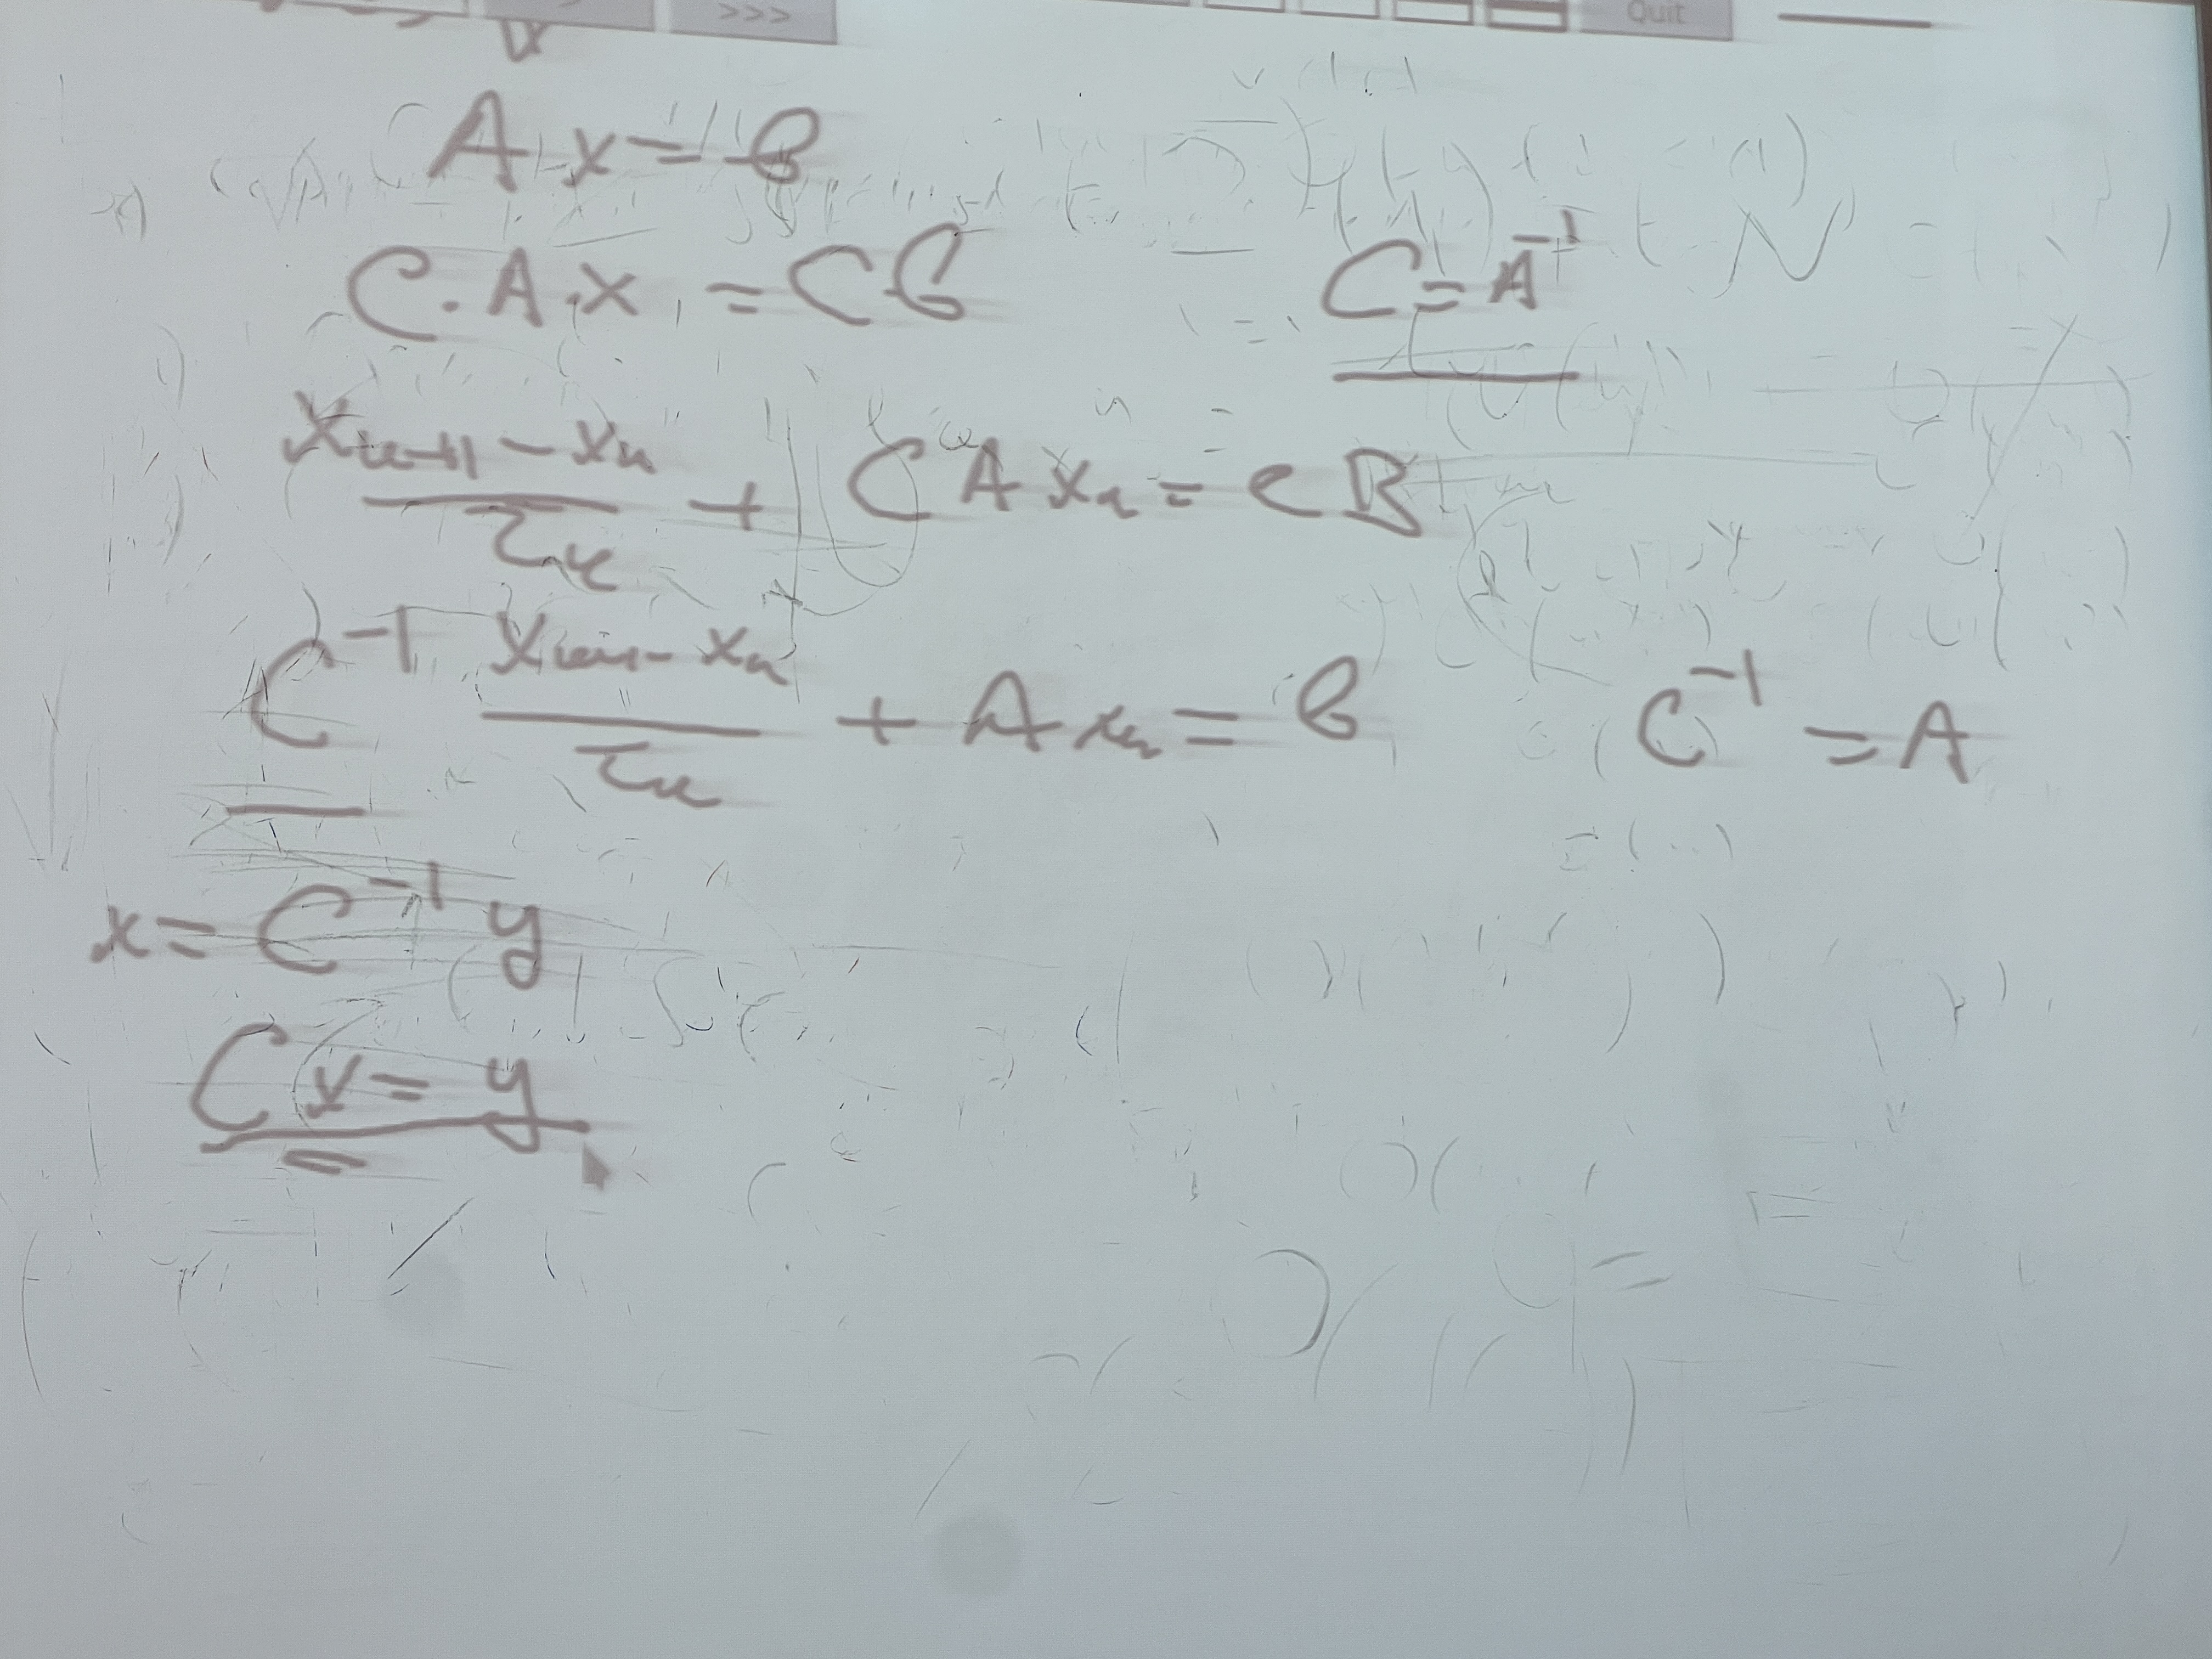 >>> Quit
A x = b
C · A · x = C b C = A⁻¹
(xₖ₊₁ − xₖ) / τₖ + C A xₖ = C B
C⁻¹ (xₖ₊₁ − xₖ) / τₖ + A xₖ = b C⁻¹ = A
x = C⁻¹ y
C x = y